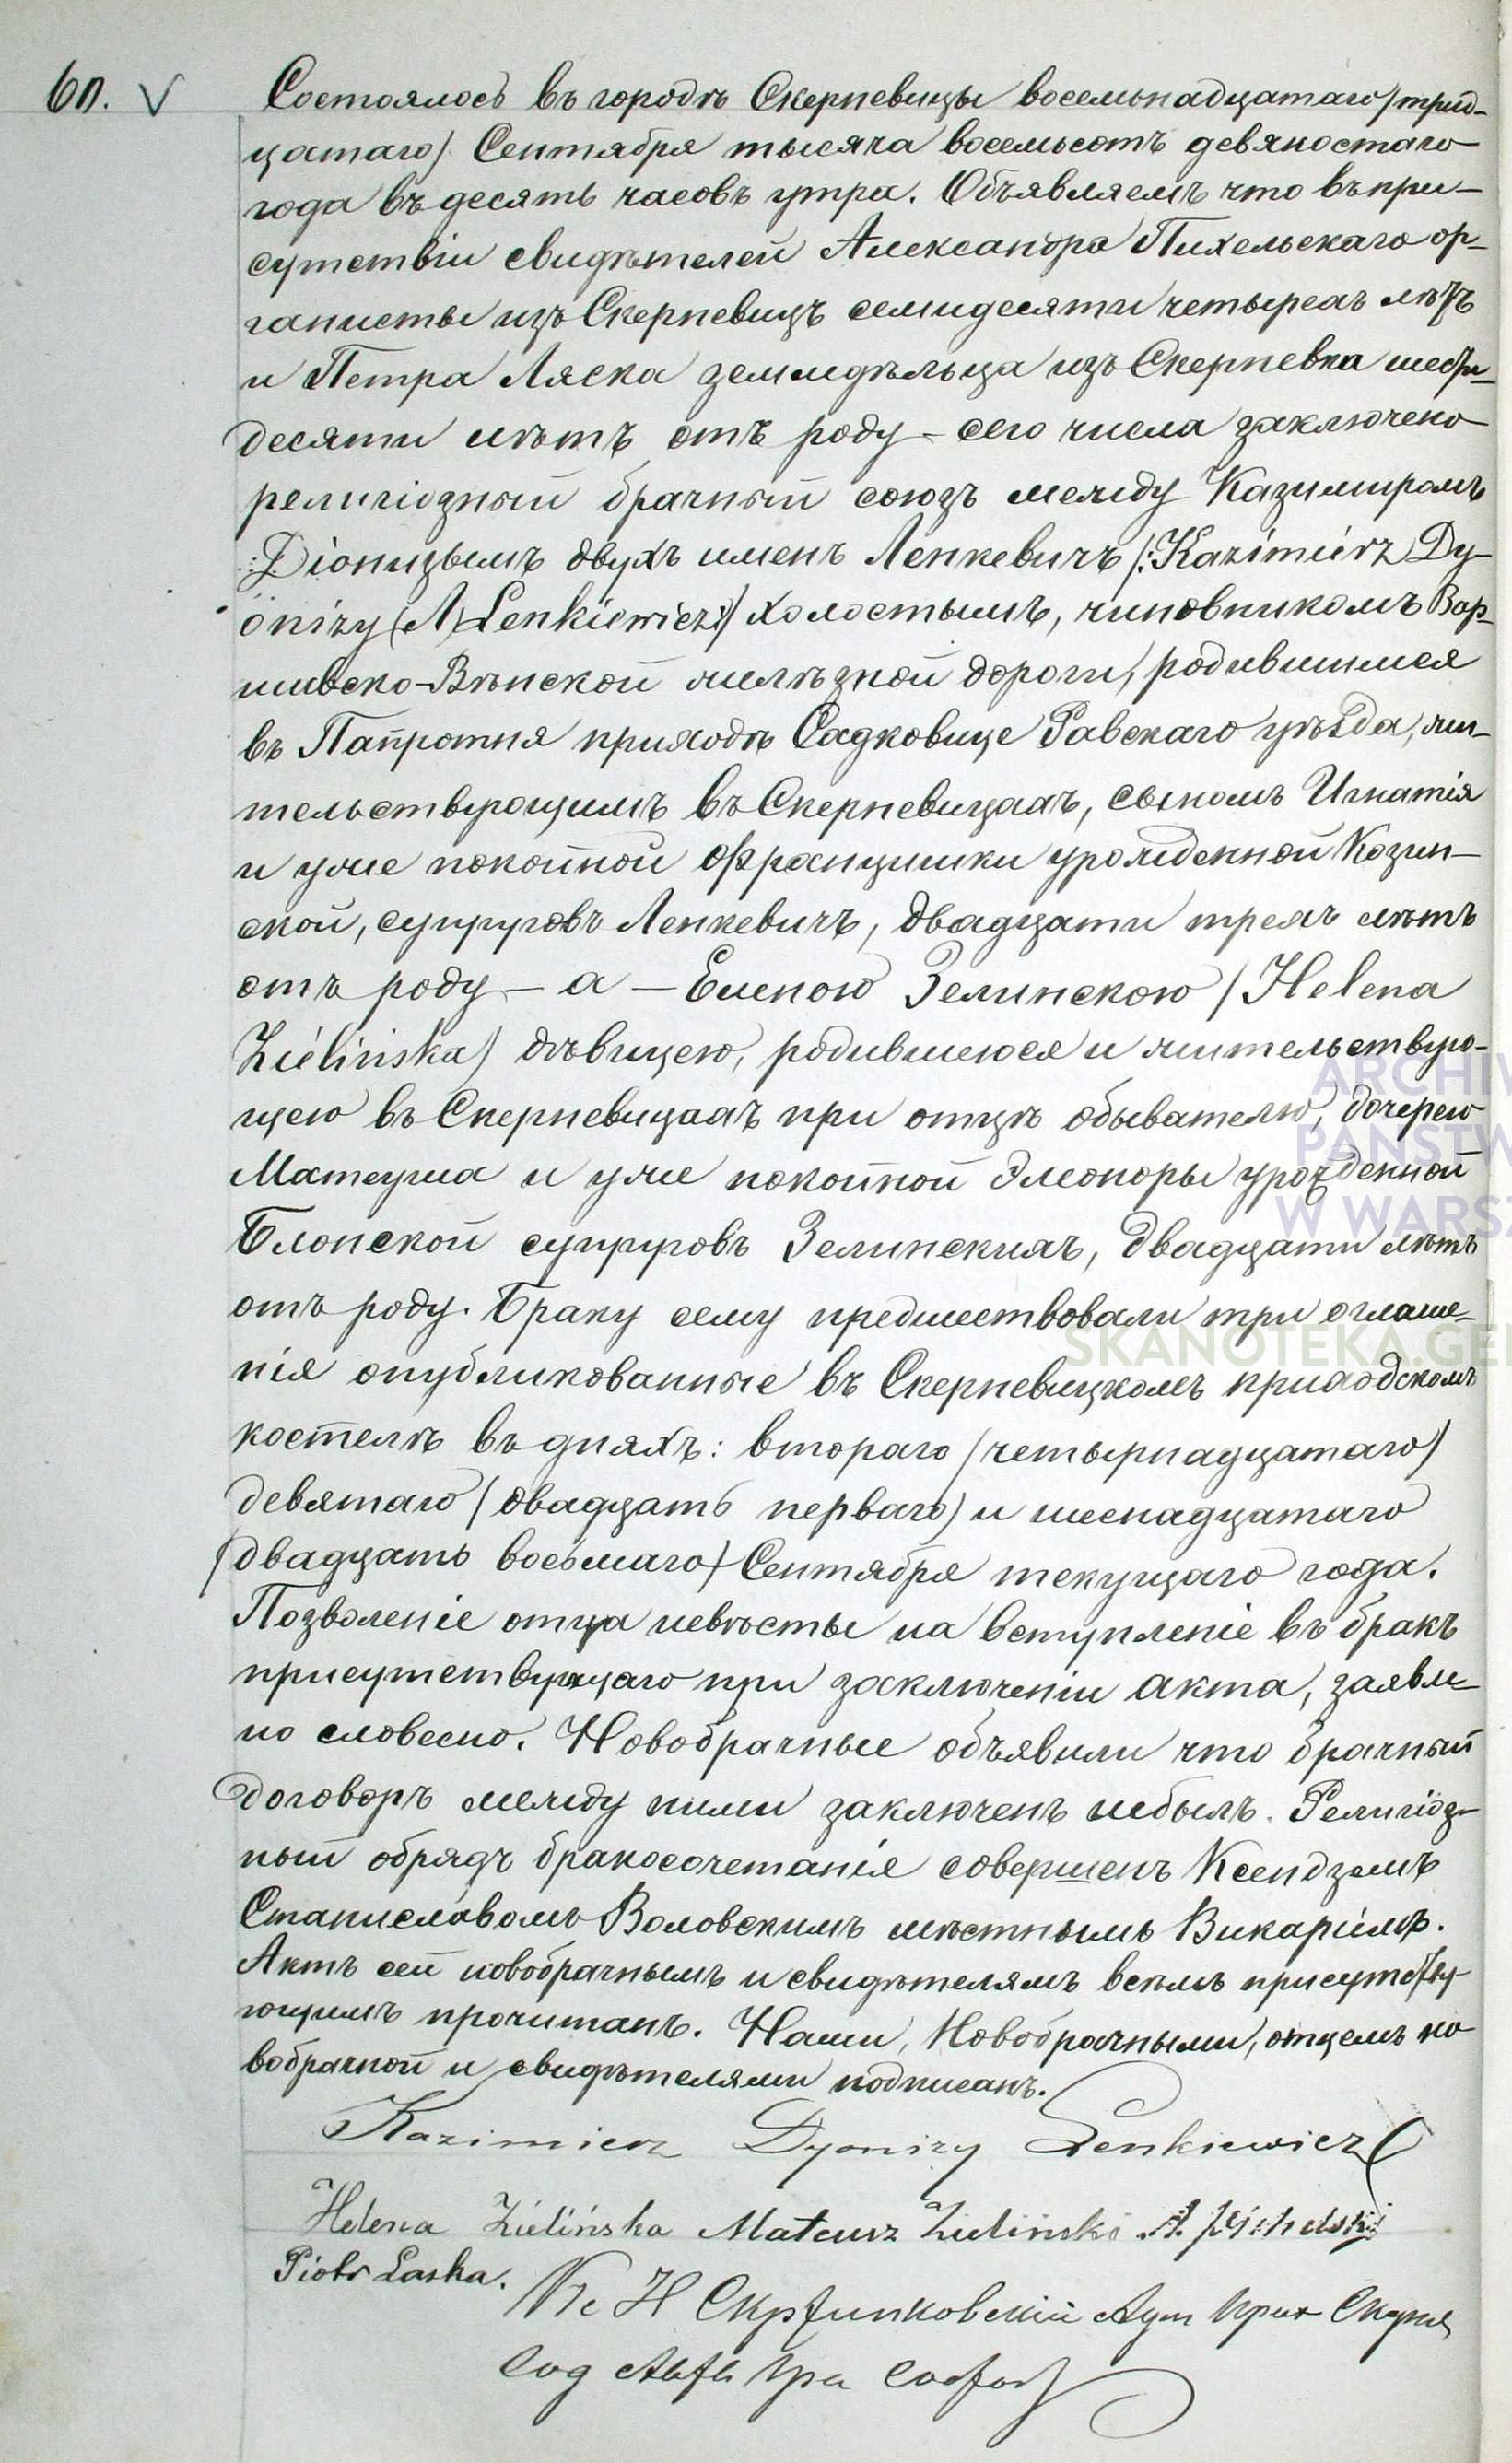 6п. V
Состоялось въ городѣ Скерневицы восемьнадцатаго /трид-
цатаго/ Сентября тысяча восемьсотъ девяностаго
года въ десять часовъ утра. Объявляемъ что въ при-
сутствіи свидѣтелей Александра Пихельскаго ор-
ганисты изъ Скерневицъ семидесяти четырехъ лѣтъ
и Петра Ляска земледѣльца изъ Скерневка шести-
десяти лѣтъ отъ роду – сего числа заключено
религіозный брачный союзъ между Казимиромъ
Діонизымъ двухъ именъ Ленкевичъ /:Kazimierz Dy-
onizy (A) Lenkiewicz:/ холостымъ, чиновникомъ Вар-
шавско-Вѣнской желѣзной дороги, родившимся
въ Папротня приходѣ Садковице Равскаго уѣзда, жи-
тельствующимъ въ Скерневицахъ, сыномъ Игнатія
и уже покойной Францишки урожденной Козин-
ской, супруговъ Ленкевичъ, двадцати трехъ лѣтъ
отъ роду – а – Еленою Зелинскою /Helena
Zielińska/ дѣвицею, родившеюся и жительствую-
щею въ Скерневицахъ при отцѣ обывателю, дочерею
Матеуша и уже покойной Элеоноры урожденной
Блонской супруговъ Зелинскихъ, двадцати лѣтъ
отъ роду. Браку сему предшествовали три оглаше-
нія опубликованные въ Скерневицкомъ приходскомъ
костелѣ въ дняхъ: втораго /четырнадцатаго/
девятаго /двадцать перваго/ и шеснадцатаго
/двадцать восьмаго/ Сентября текущаго года.
Позволеніе отца невѣсты на вступленіе въ бракъ
присутствующаго при заключеніи акта, заявле-
но словесно. Новобрачные объявили что брачный
договоръ между ними заключенъ небылъ. Религіоз-
ный обрядъ бракосочетанія совершенъ Ксендземъ
Станиславомъ Воловскимъ мѣстнымъ Викаріемъ.
Актъ сей новобрачнымъ и свидѣтелямъ всѣмъ присутству-
ющимъ прочитанъ. Нами, Новобрачными, отцемъ но-
вобрачной и свидѣтелями подписанъ.
Kazimierz Dyonizy Lenkiewicz
Helena Zielińska Mateusz Zieliński A. Pichelski
Piotr Laska.
Кс Н Скржинковскій Адм Прих Скерн
Сод Акты Гра Сост
ARCHIW
PAŃSTW
W WARSZ
SKANOTEKA.GEN